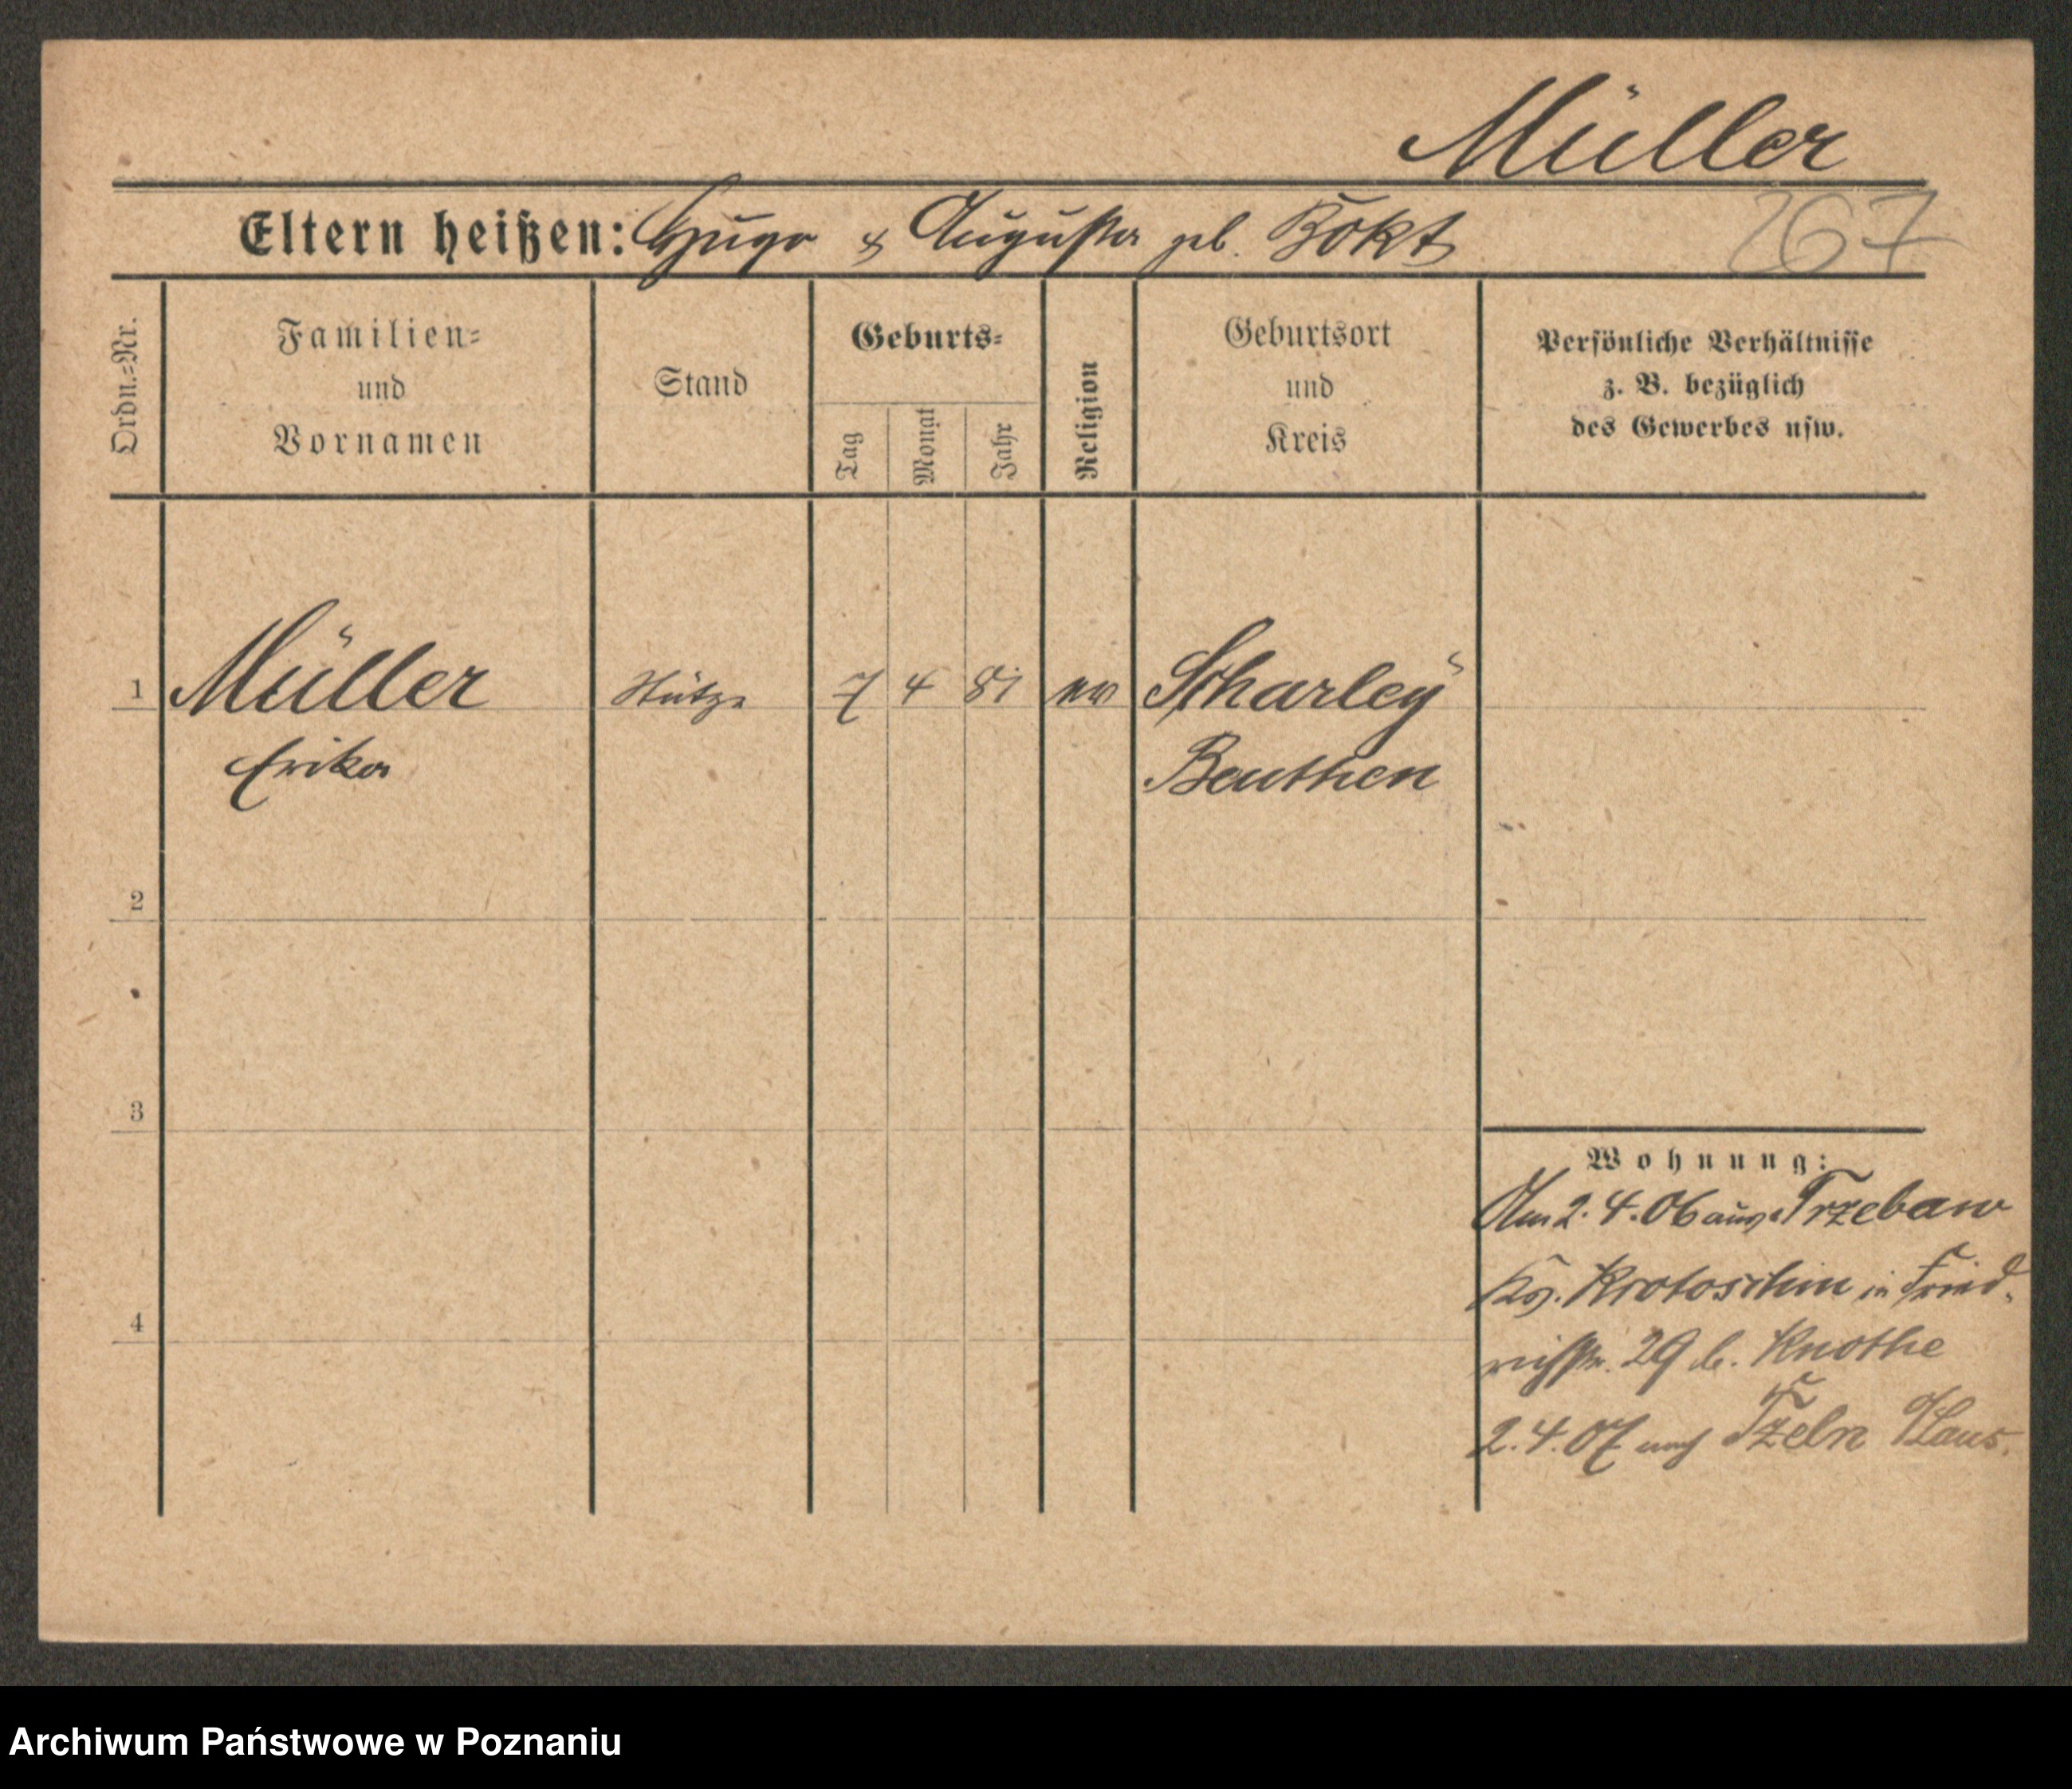 Müller
Eltern heißen: Hugo & Augusta geb. Bokt
267
Ordn.-Nr.
Familien-
und
Vornamen
Stand
Geburts-
Tag
Monat
Jahr
Religion
Geburtsort
und
Kreis
Persönliche Verhältnisse
z. B. bezüglich
des Gewerbes usw.
1 Müller Stütze 7 4 81 Scharley
Erika Beuthen
2
3
4
Wohnung:
Am 2.4.06 aus Trzebaw
Krotoschin in Fried.
29 b. Knothe
2.4.07 nach
Archiwum Państwowe w Poznaniu